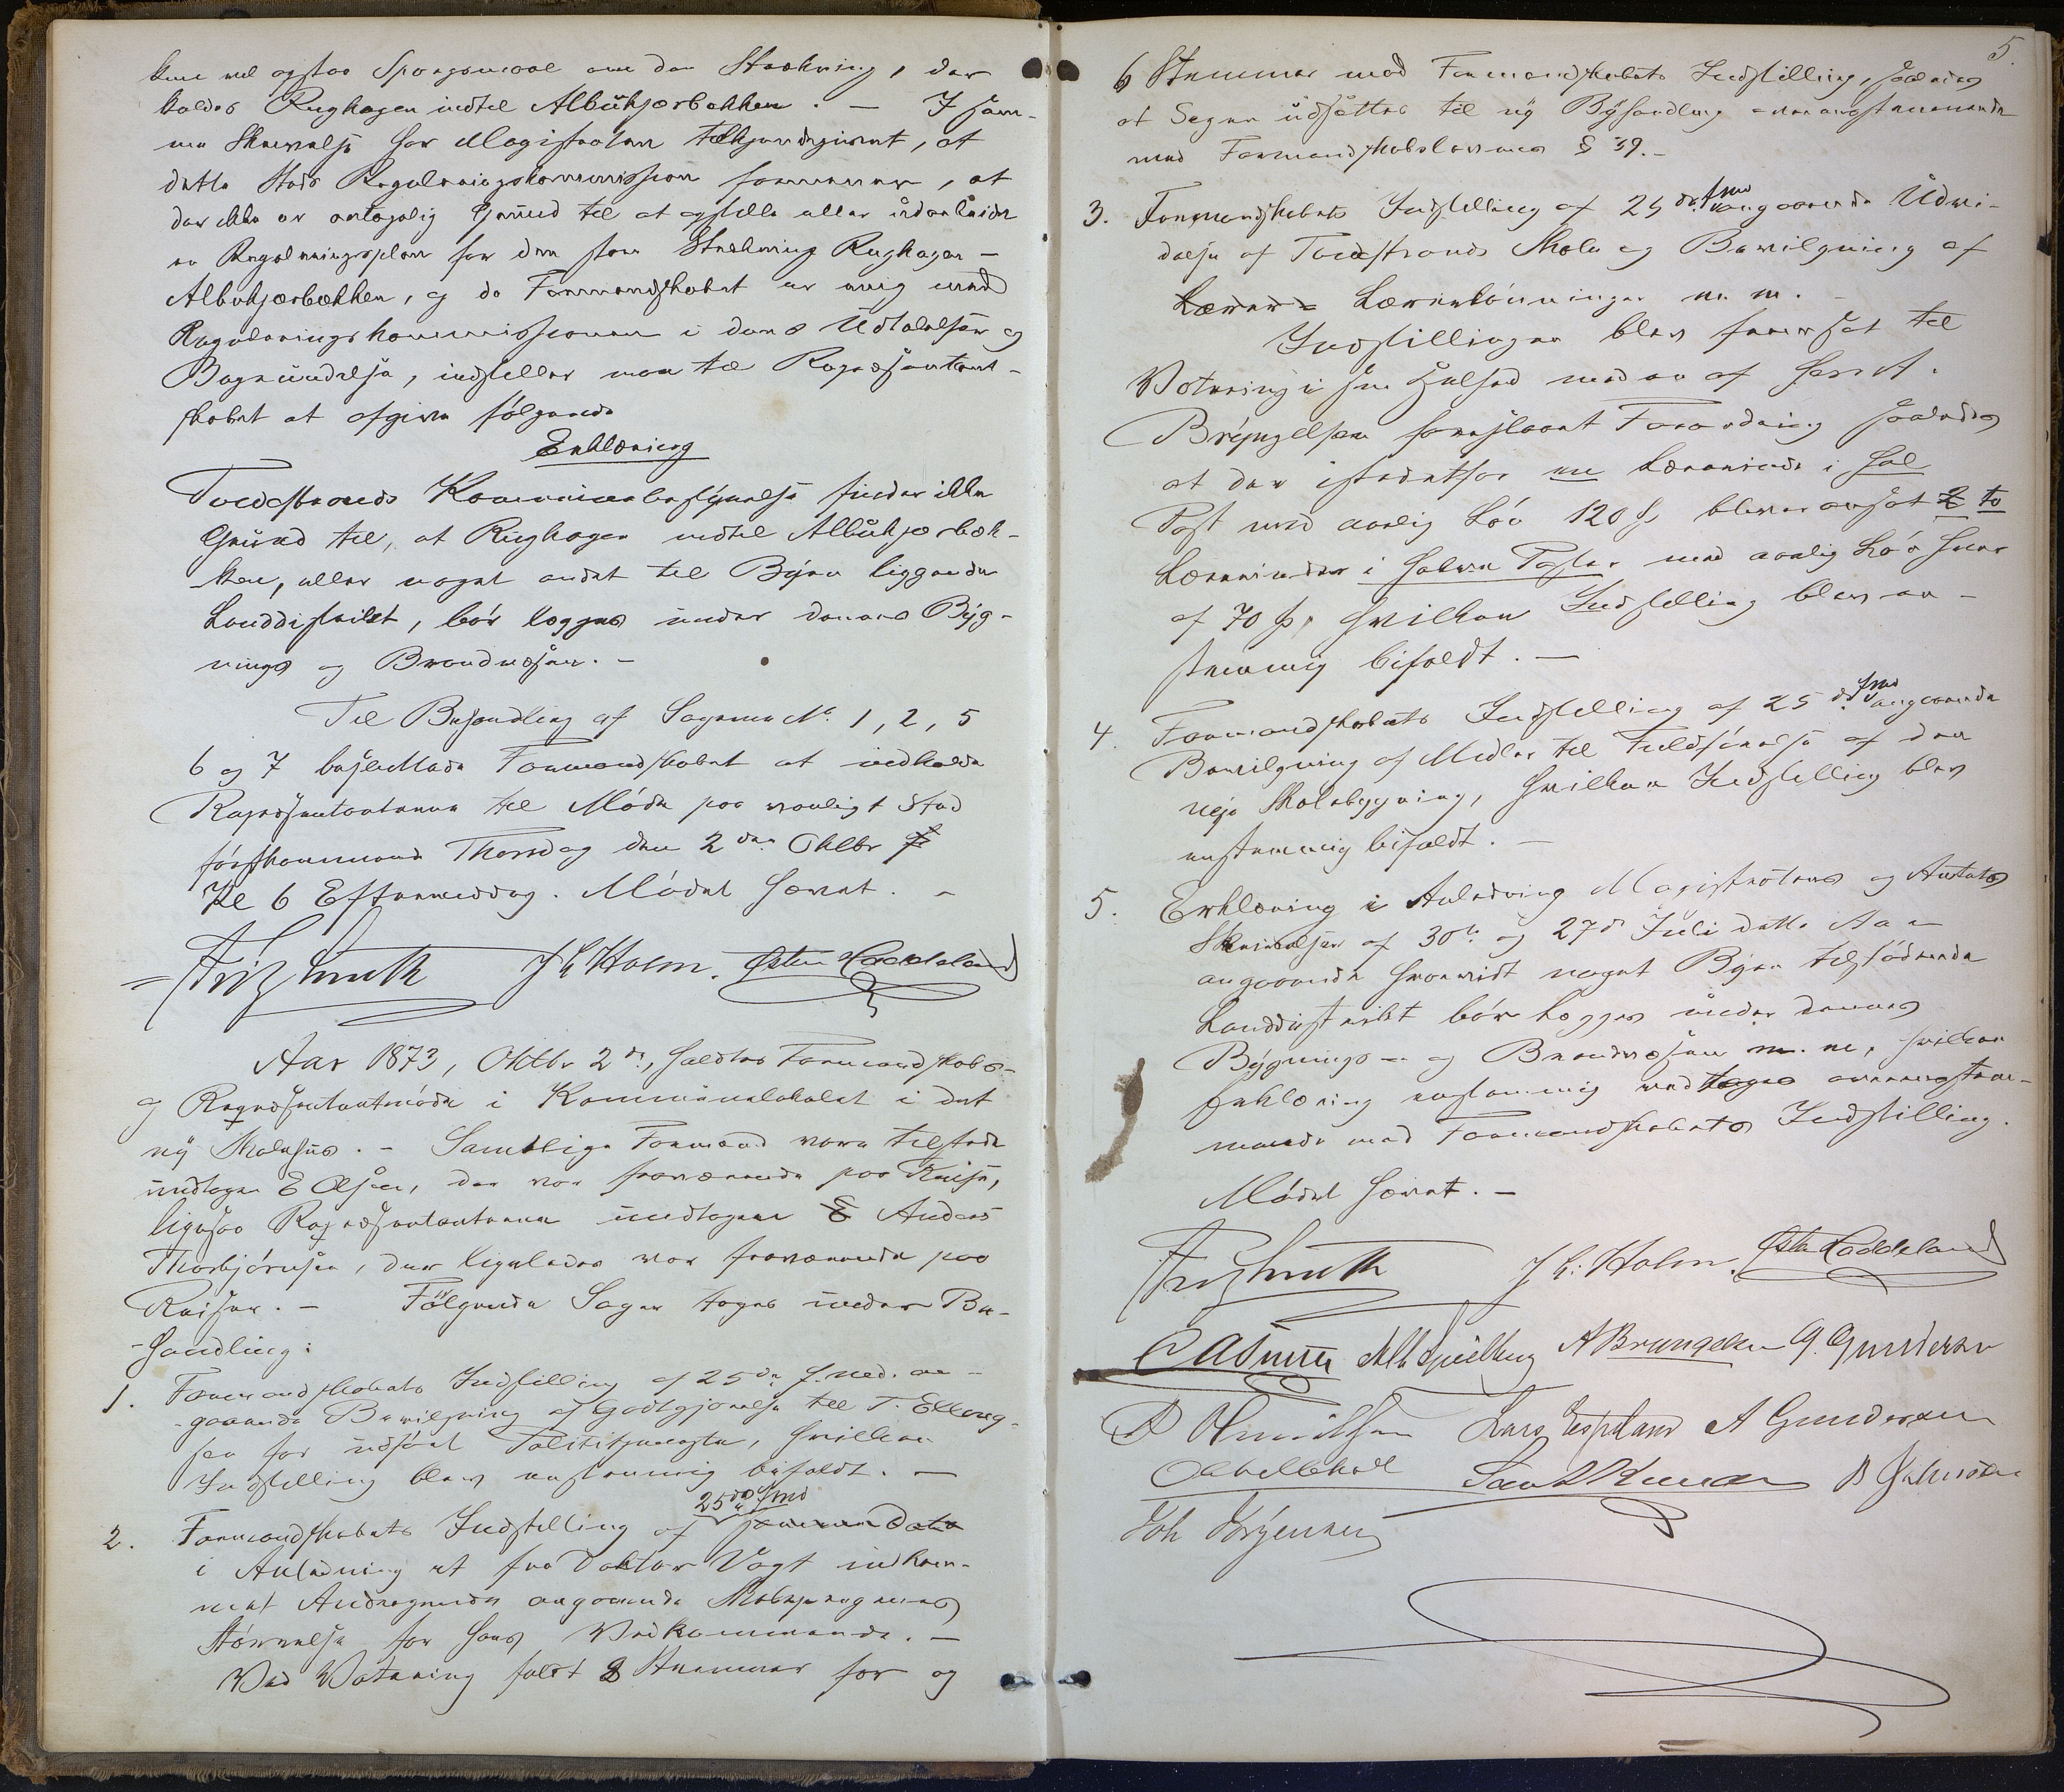 kun vel opstaa Spørgsmaal om den Strækning, der
kaldes Rughagen indtil Albukjærbækken. — I sam-
me Skrivelse har Magistraten tilkjendegivet, at
dette Steds Reguleringskommission formener, at
der ikke er antagelig Grund til at opstille eller udarbeide
en Reguleringsplan for den store Strækning Rughagen -
Albukjærbækken, og da Formandskabet er enig med
Reguleringskommissionen i dens Udtalelser og
Begrundelse, indstiller man til Repræsentant-
skabet at afgive følgende
Erklæring
Tvedestrands Kommunebestyrelse finder ikke
Grund til, at Rughagen indtil Albukjærbæk-
ken, eller noget andet til Byen liggende
Landdistrikt, bør lægges under dennes Byg-
nings og Brandvæsen. -
Til Behandling af Sagerne No. 1, 2, 5
6 og 7 besluttede Formandskabet at indkalde
Repræsentanterne til Møde paa vanligt Sted
førstkommende Thorsdag den 2den Oktbr
Kl 6 Eftermiddag. Mødet hævet. -
Friz Smith J L Holm. Østen Loddeland
Aar 1873, Oktbr 2d., holdtes Formandskabs-
og Repræsentantmøde i Kommunelokalet i det
ny Skolehus. - Samtlige Formænd vare tilstede
undtagen E Olsen, der var fraværende paa Reise,
ligesaa Repræsentanterne undtagen E Anders
Thorbjørnsen, der ligeledes var fraværende paa
Reiser. - Følgende Sager toges under Be-
-handling:
1. Formandskabets Indstilling af 25de f. Md. an-
-gaaende Bevilgning af Godtgjørelse til T. Elling-
sen for udført Polititjeneste, hvilken
Indstilling blev enstemmig bifaldt. —
25de f Md
2. Formandskabets Indstilling af samme Dato
i Anledning et fra Doktor Vogt indkom-
met Andragende angaaende Skolepengenes
Størrelse for hans Vedkommende. —
Ved Votering faldt 8 Stemmer for og
5.
6 Stemmer mod Formandskabets Indstilling, saaledes
at Sagen udsættes til ny Behandling - overensstemmende
med Formandskabslovens § 39. -
3. Formandskabets Indstilling af 25de f Md angaaende Udvi-
delse af Tvedestrands Skole og Bevilgning af
Lærer= Lærerlønninger m. m.
Indstillingen blev foreersat til
Votering i sin Helhed med en af Herr A.
Bryngelsen foreslaaet Forandring saaledes
at der istedetfor en Lærerinde i hel
Post med aarlig Løn 120 Sp bliver ansat 2 to
Lærerinder i halve Poster med aarlig Løn hver
af 70 Sp, hvilken Indstilling blev en-
stemmig bifaldt. —
4. Formandskabets Indstilling af 25de f Md angaaende
Bevilgning af Midler til Fuldførelse af den
nye Skolebygning, hvilken Indstilling blev
enstemmig bifaldt. —
5. Erklæring i Anledning Magistratens og Amtets
Skrivelser af 30te og 27d Juli dette Aar
angaaende hvorvidt noget Byen tilstødende
Landdistrikt bør lægges under dennes
Bygnings- og Brandvæsen m. m, hvilken
Erklæring enstemmig vedtoges overensstem-
mende med Formandskabets Indstilling.
Mødet hævet. -
Friz Smith J L: Holm. Østen Loddeland
A Bryngelsen G. Gundersen
Lars Espeland A Gundersen